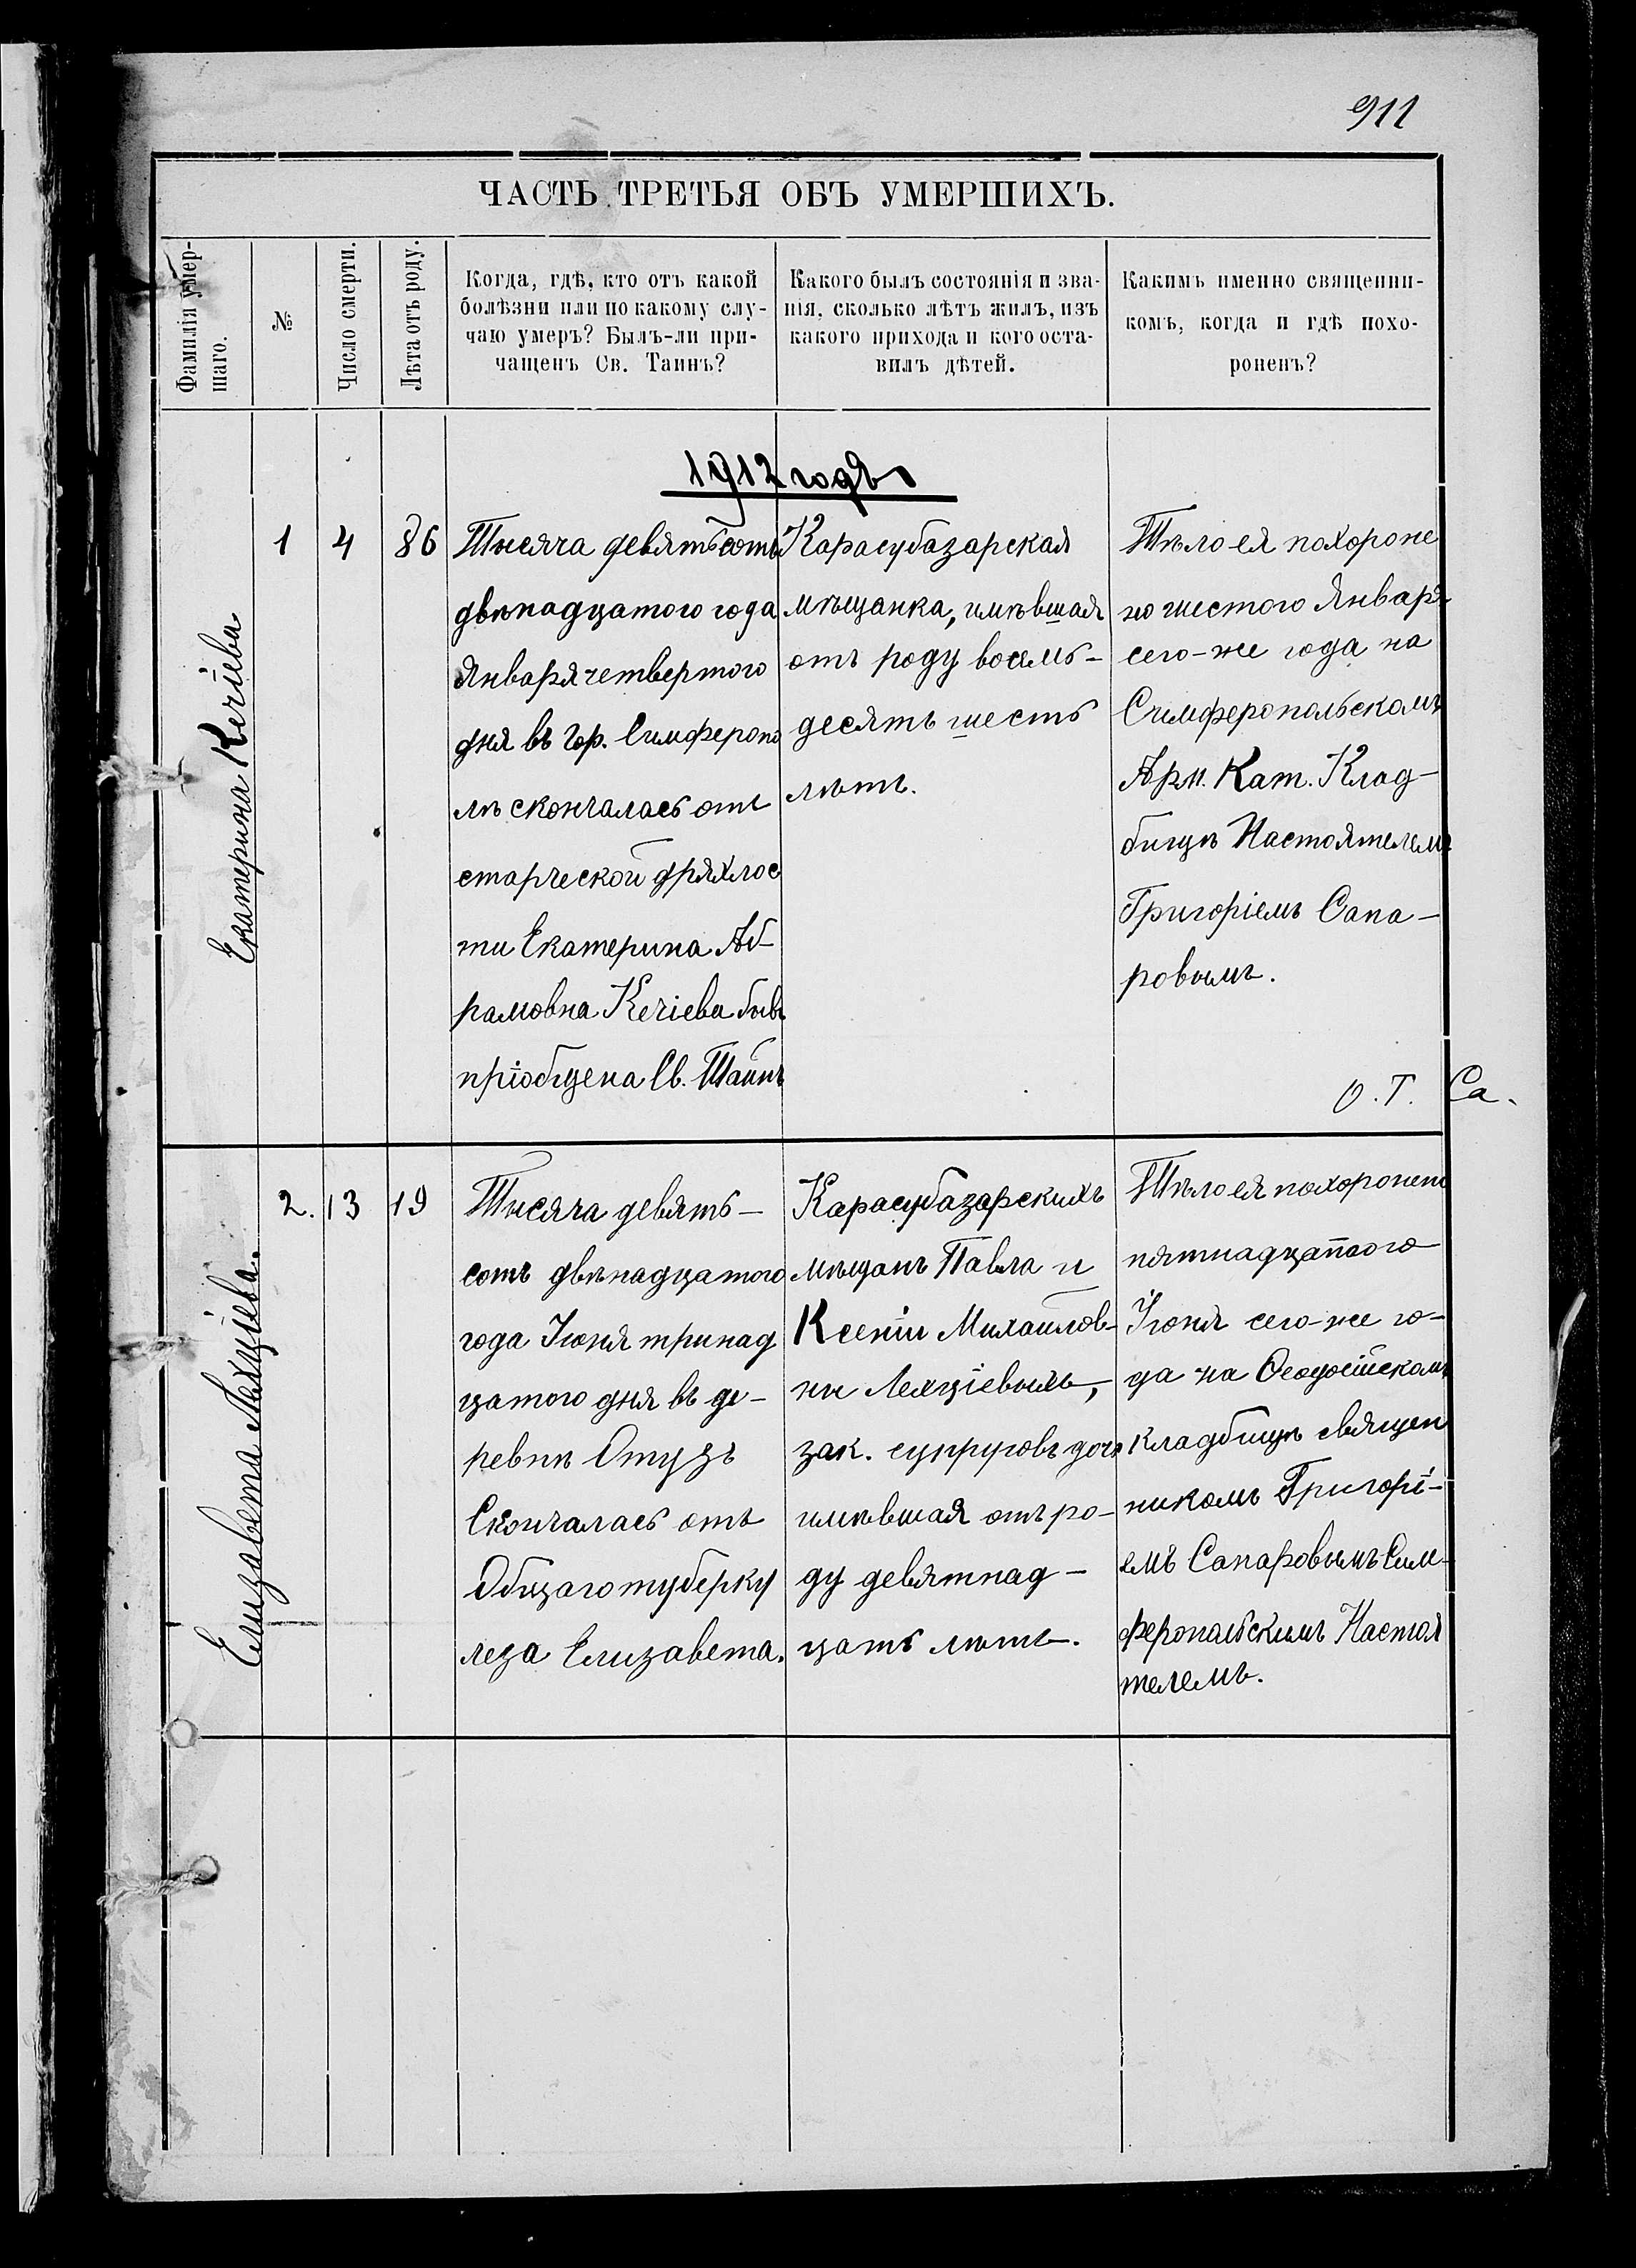 911
ЧАСТЬ ТРЕТЬЯ ОБЪ УМЕРШИХЪ.
Фамилія умер-
шаго.
№
Число смерти.
Лѣта отъ роду.
Когда, гдѣ, кто отъ какой
болѣзни или по какому слу-
чаю умеръ? Былъ-ли при-
чащенъ Св. Таинъ?
Какого былъ состоянія и зва-
нія, сколько лѣтъ жилъ, изъ
какого прихода и кого оста-
вилъ дѣтей.
Какимъ именно священни-
комъ, когда и гдѣ похо-
роненъ?
1912 годъ
Екатерина Кечіева
1
4
86
Тысяча девятьсотъ
двѣнадцатого года
Января четвертого
дня въ гор. Симферопо
лѣ скончалась отъ
старческой дряхлос
ти Екатерина Аб-
рамовна Кечіева бывъ
пріобщена Св. Таинъ
Карасубазарская
мѣщанка, имѣвшая
отъ роду восемь-
десятъ шесть
лѣтъ.
Тѣло ея похороне
но шестого Января
сего-же года на
Симферопольскомъ
Арм. Кат. Клад-
бищѣ Настоятелемъ
Григоріемъ Сапа-
ровымъ.
О. Г. Са.
Елизавета Лехціева.
2.
13
19
Тысяча девять-
сотъ двѣнадцатого
года Іюня тринад
цатого дня въ де-
ревнѣ Отузъ
Скончалась отъ
Общаго туберку
леза Елизавета.
Карасубазарскихъ
мѣщанъ Павла и
Ксеніи Михайлов-
ны Лехціевыхъ,
зак. супруговъ дочь
имѣвшая отъ ро-
ду девятнад-
цать лѣтъ.
Тѣло ея похоронено
пятнадцатого
Іюня сего-же го-
да на Ѳеодосійскомъ
кладбищѣ священ
никомъ Григорі-
емъ Сапаровымъ Сим-
феропольскимъ Настоя
телемъ.